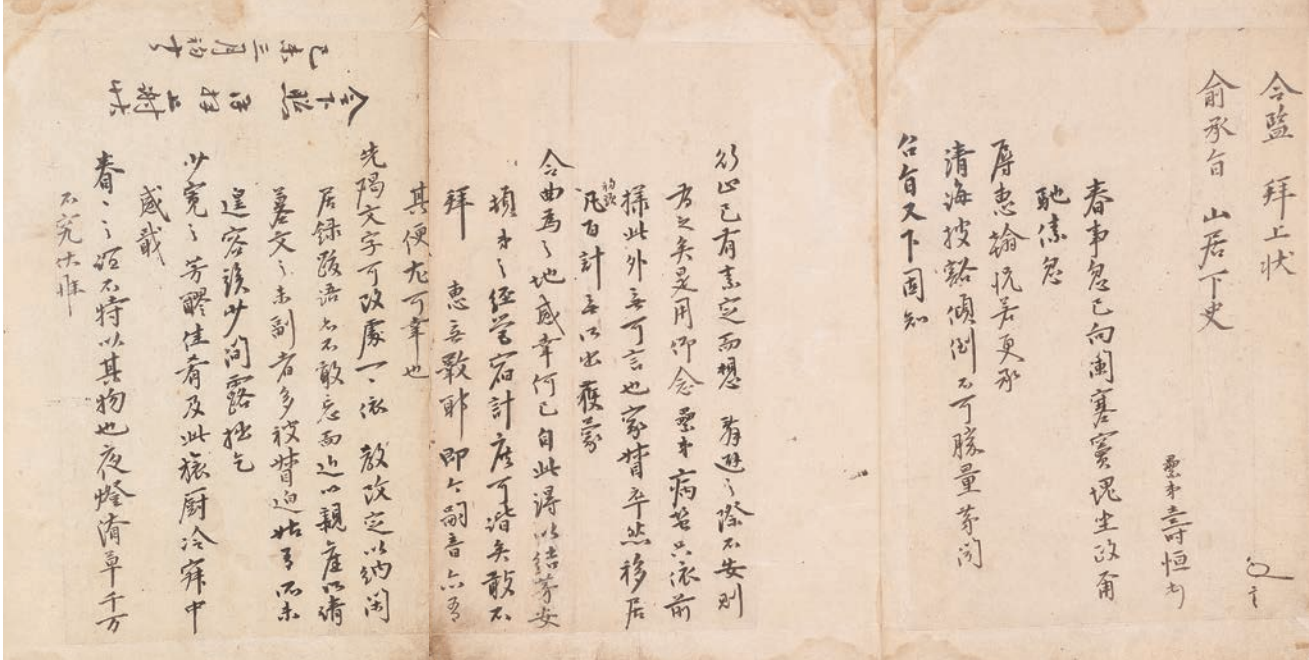 令監 拜上狀
俞承旨 山居下史
壽恒
春事忽已向闌塞竇塊坐政爾
馳傃忽
辱惠翰恍若更承
清海披豁傾倒不可勝量第聞
召旨又下固知
行止已有素定而想 有避之際不安則
有之矣是用仰念 病苦只依前
樣此外無可言也家督卒然移居
凡百計無以出獲蒙
令曲爲之地感幸何已自此得以結芽安
頓之經營宿計庶可諧矣敢不
拜 惠無斁耶即今嗣音亦有
其便尤可幸也
先碣文字可改處一依 敎改定以納
居錄跋語亦不敢忘而近以親產以請
墓文之未副者多被督迫姑有所未
遑容竢少間露拙乞
少寬之芳醪佳肴及此旅廚冷寂中
感戢
眷之 不特以其物也夜燈潦草千万
不宣伏惟
令下鑑 拜上謝狀
己未三月初十